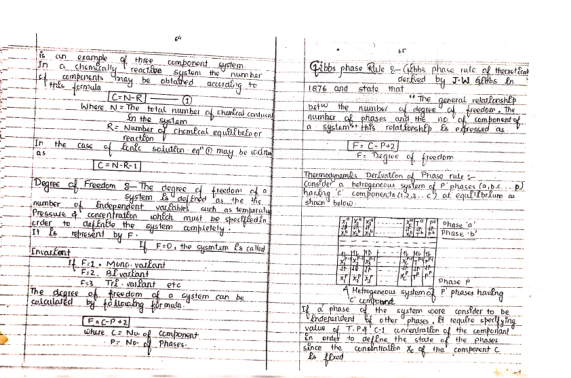 64
is an example of three component system
In a chemically reactive system the number
of components may be obtained according to
this formula
C=N-R ①
Where N= The total number of chemical
in the system
R= Number of chemical
reaction
In the case of ionic solution eqn ① may be
as
C=N-R-1
Degree of Freedom :- The degree of freedom of a
system is defined as the the
number of Independent variables such as temperature
Pressure & concentration which must be specified in
order to define the system completely.
It is represent by F.
If F=0, the system is called
Invariant
If F=1, Mono-variant
F=2, Bivariant
F=3 Tri-variant etc
The degree of freedom of a system can be
calculated by following formula.
F=C-P+2
where C= No of component
P= No. of Phases.
65
Gibbs phase Rule :- Gibbs phase rule of
derived by J.W Gibbs in
1876 and state that
"The general relationship
betw the number of degree of freedom, The
number of phases and the no of component of
a system" this relationship is expressed as
F= C-P+2
F= Degree of freedom
Thermodynamics Derivation of Phase rule :-
Consider a hetrogeneous system of P phases (a,b,c...p)
having C components (1,2,3...c) at equilibrium as
shown below
Phase 'a'
Phase 'b'
Phase P
A Hetrogeneous system of P phases having
C component
If a phase of the system were consider to be
independent of other phases, it require specifying
value of T.P & C-1 concentration of the component
in order to define the state of the phases
since the concentration of the component C
is fixed